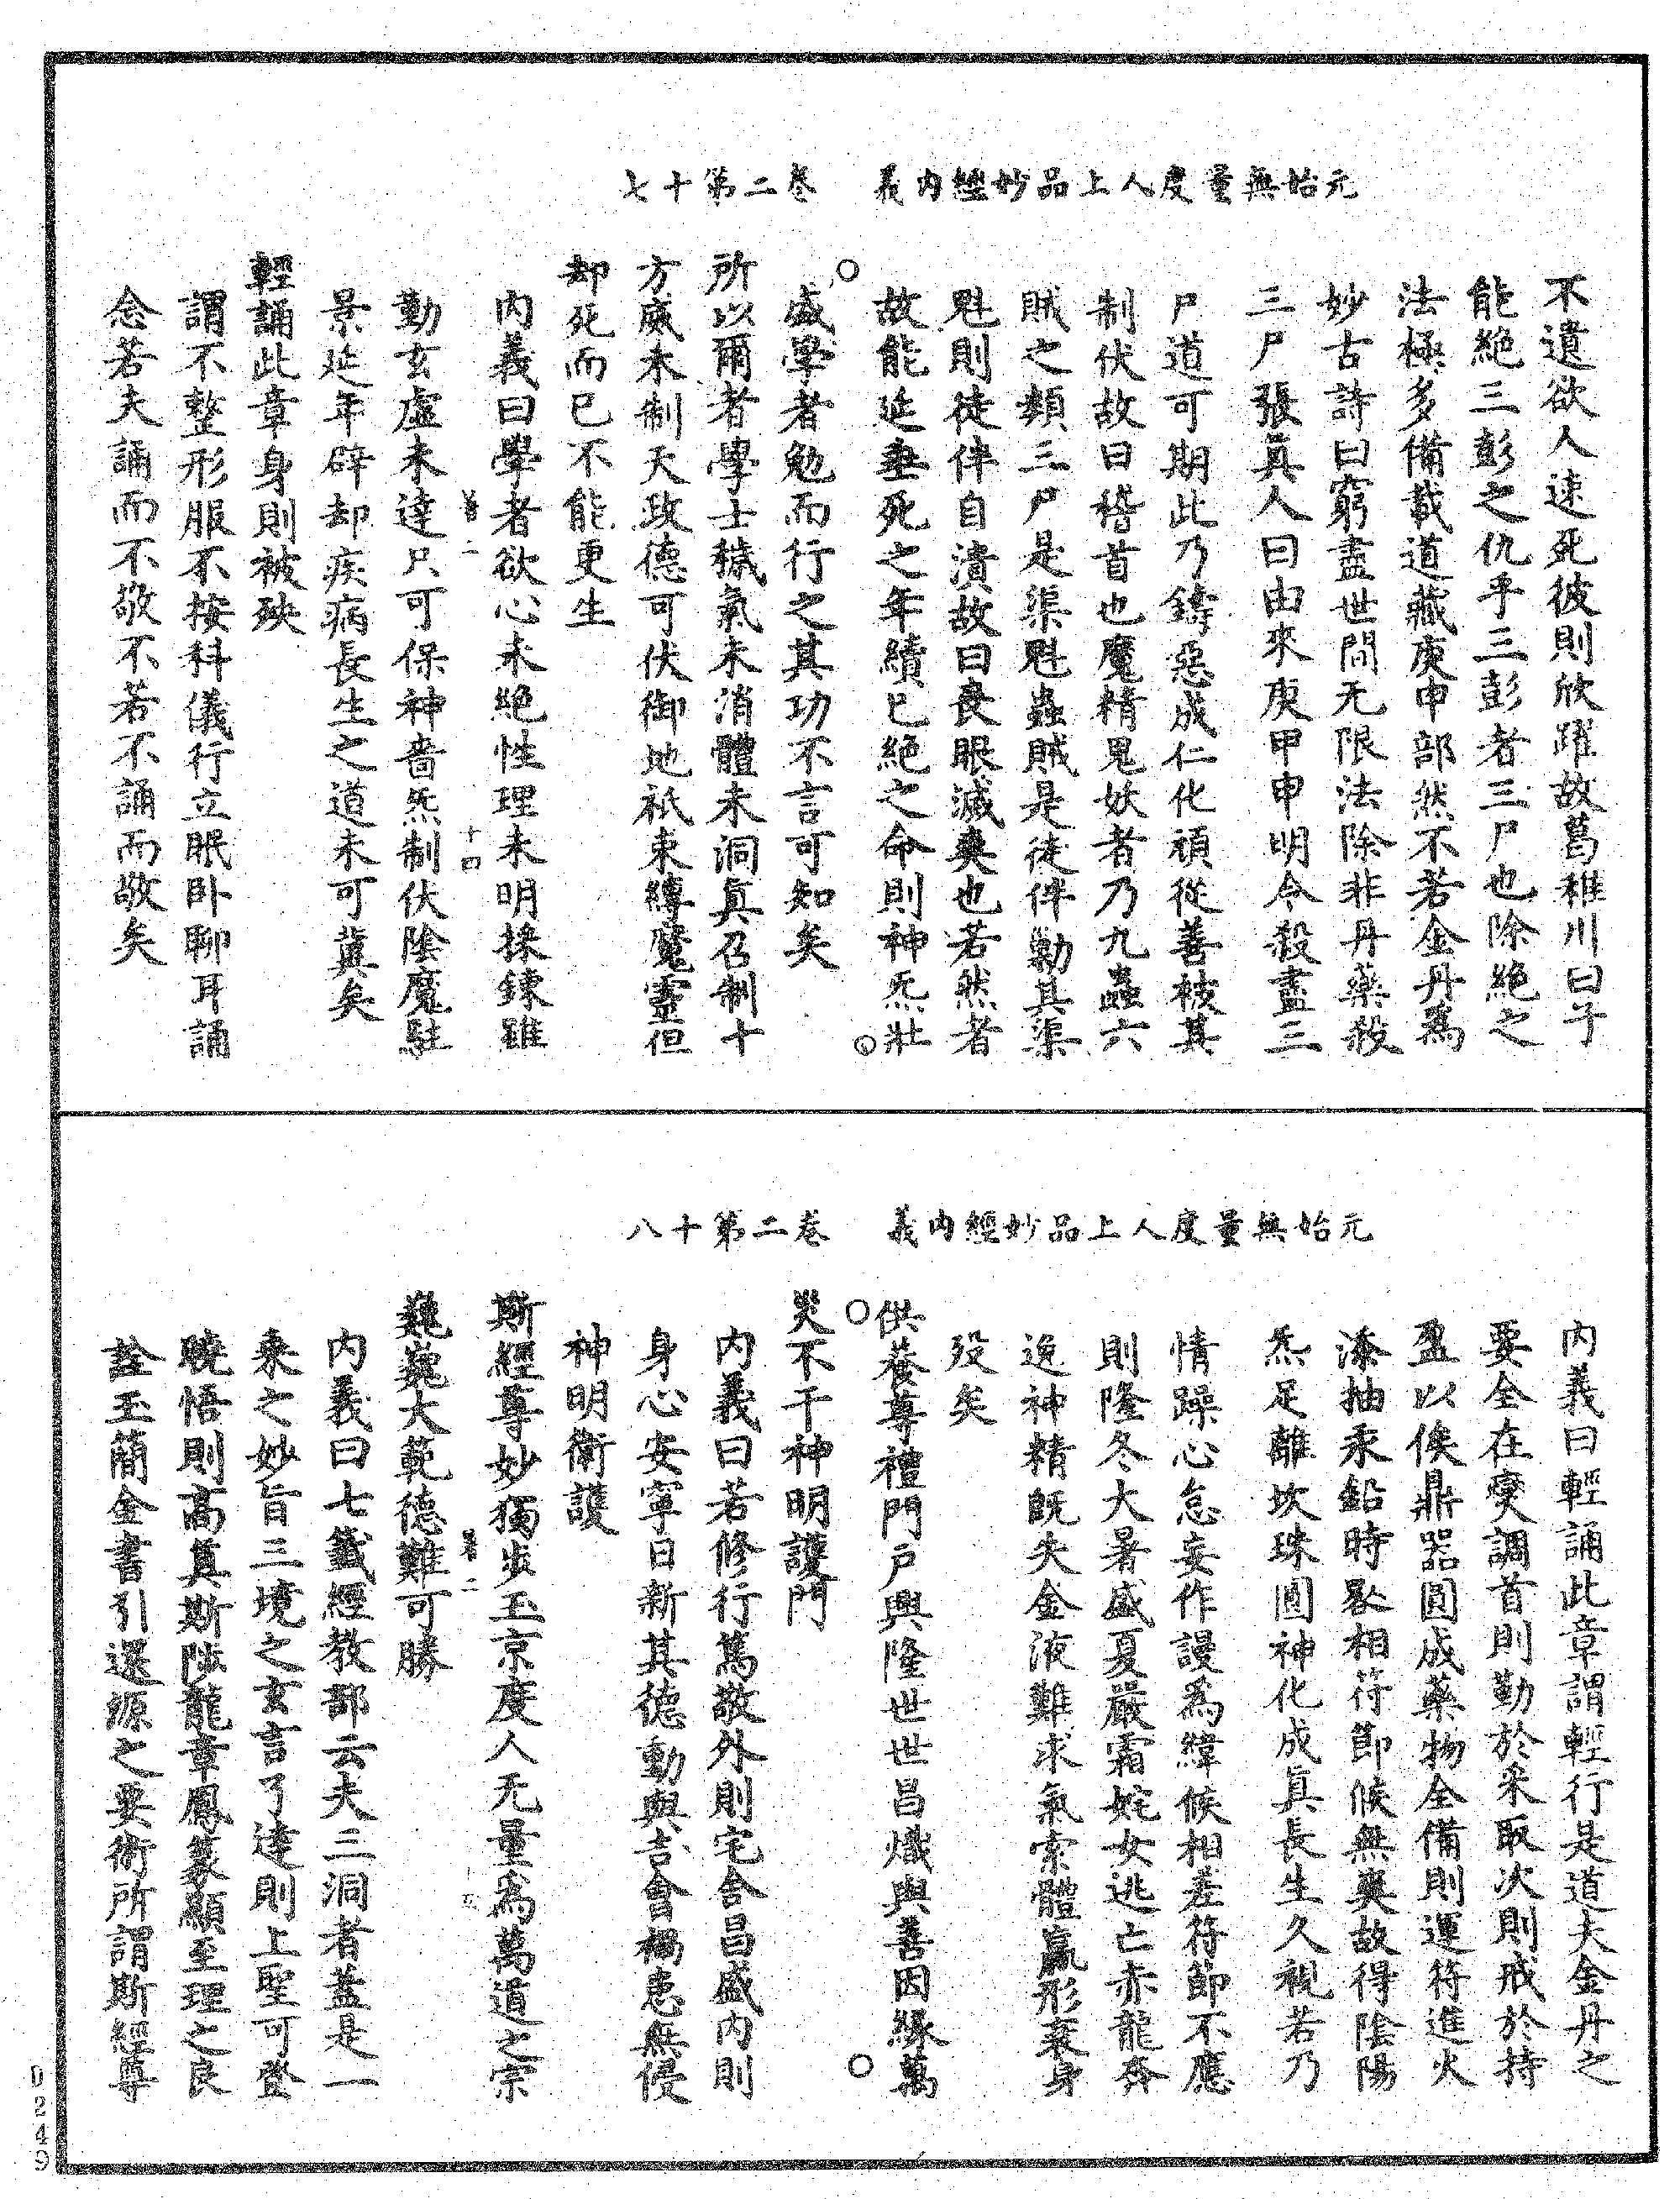 元始無量度人上品妙經內義　卷二第十七
不遺欲人速死彼則欣躍故葛稚川曰子
能絕三彭之仇乎三彭者三尸也除絕之
法極多備載道藏庚申部然不若金丹爲
妙古詩曰窮盡世間无限法除非丹藥殺
三尸張眞人曰由來庚甲申明令殺盡三
尸道可期此乃鑄惡成仁化頑從善校其
制伏故曰稽首也魔精鬼妖者乃九蟲六
賊之類三尸是渠魁蟲賊是徒伴勦其渠
魁則徒伴自潰故曰喪眼滅爽也若然者
故能延垂死之年續已絕之命則神炁壯
盛學者勉而行之其功不言可知矣
○所以爾者學士穢氣未消體未洞眞召制十
方威未制天政德可伏御地祇束縛魔靈但
却死而已不能更生
內義曰學者欲心未絕性理未明採鍊雖
勤玄虛未達只可保神嗇炁制伏陰魔駐
景延年辟却疾病長生之道未可冀矣
輕誦此章身則被殃
謂不整形服不按科儀行立眠卧聊耳誦
念若夫誦而不敬不若不誦而敬矣
二
十四
元始無量度人上品妙經內義　卷二第十八
內義曰輕誦此章謂輕行是道夫金丹之
要全在燮調首則勤於采取次則戒於持
盈以俟鼎器圓成藥物全備則運符進火
添抽汞鉛時晷相符節候無爽故得陰陽
炁足離坎珠圓神化成眞長生久視若乃
情躁心怠妄作謾為緯候相差符節不應
則隆冬大暑盛夏嚴霜姹女逃亡赤龍奔
逸神精旣失金液難求氣索體羸形衰身
殁矣
供養尊禮門戶興隆世世昌熾與善因緣萬
○災不干神明護門
內義曰若修行篤敬外則宅舍昌盛內則
身心安寧日新其德動與吉會禍患無侵
神明衛護
斯經尊妙獨步玉京度人无量為萬道之宗
巍巍大範德難可勝
內義曰七籤經教部云夫三洞者蓋是一
乘之妙旨三境之玄言了達則上聖可登
曉悟則高眞斯陟龍章鳳篆顯至理之良
詮玉簡金書引還源之要術所謂斯經尊
二
十五
D249